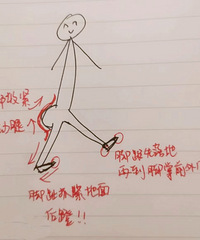 部收緊
腳跟先落地
再到腳掌前外
腳趾抓緊地面
后蹬!!